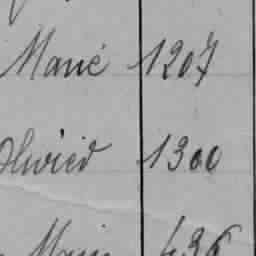 Marié 1207
Olivier 1300
436